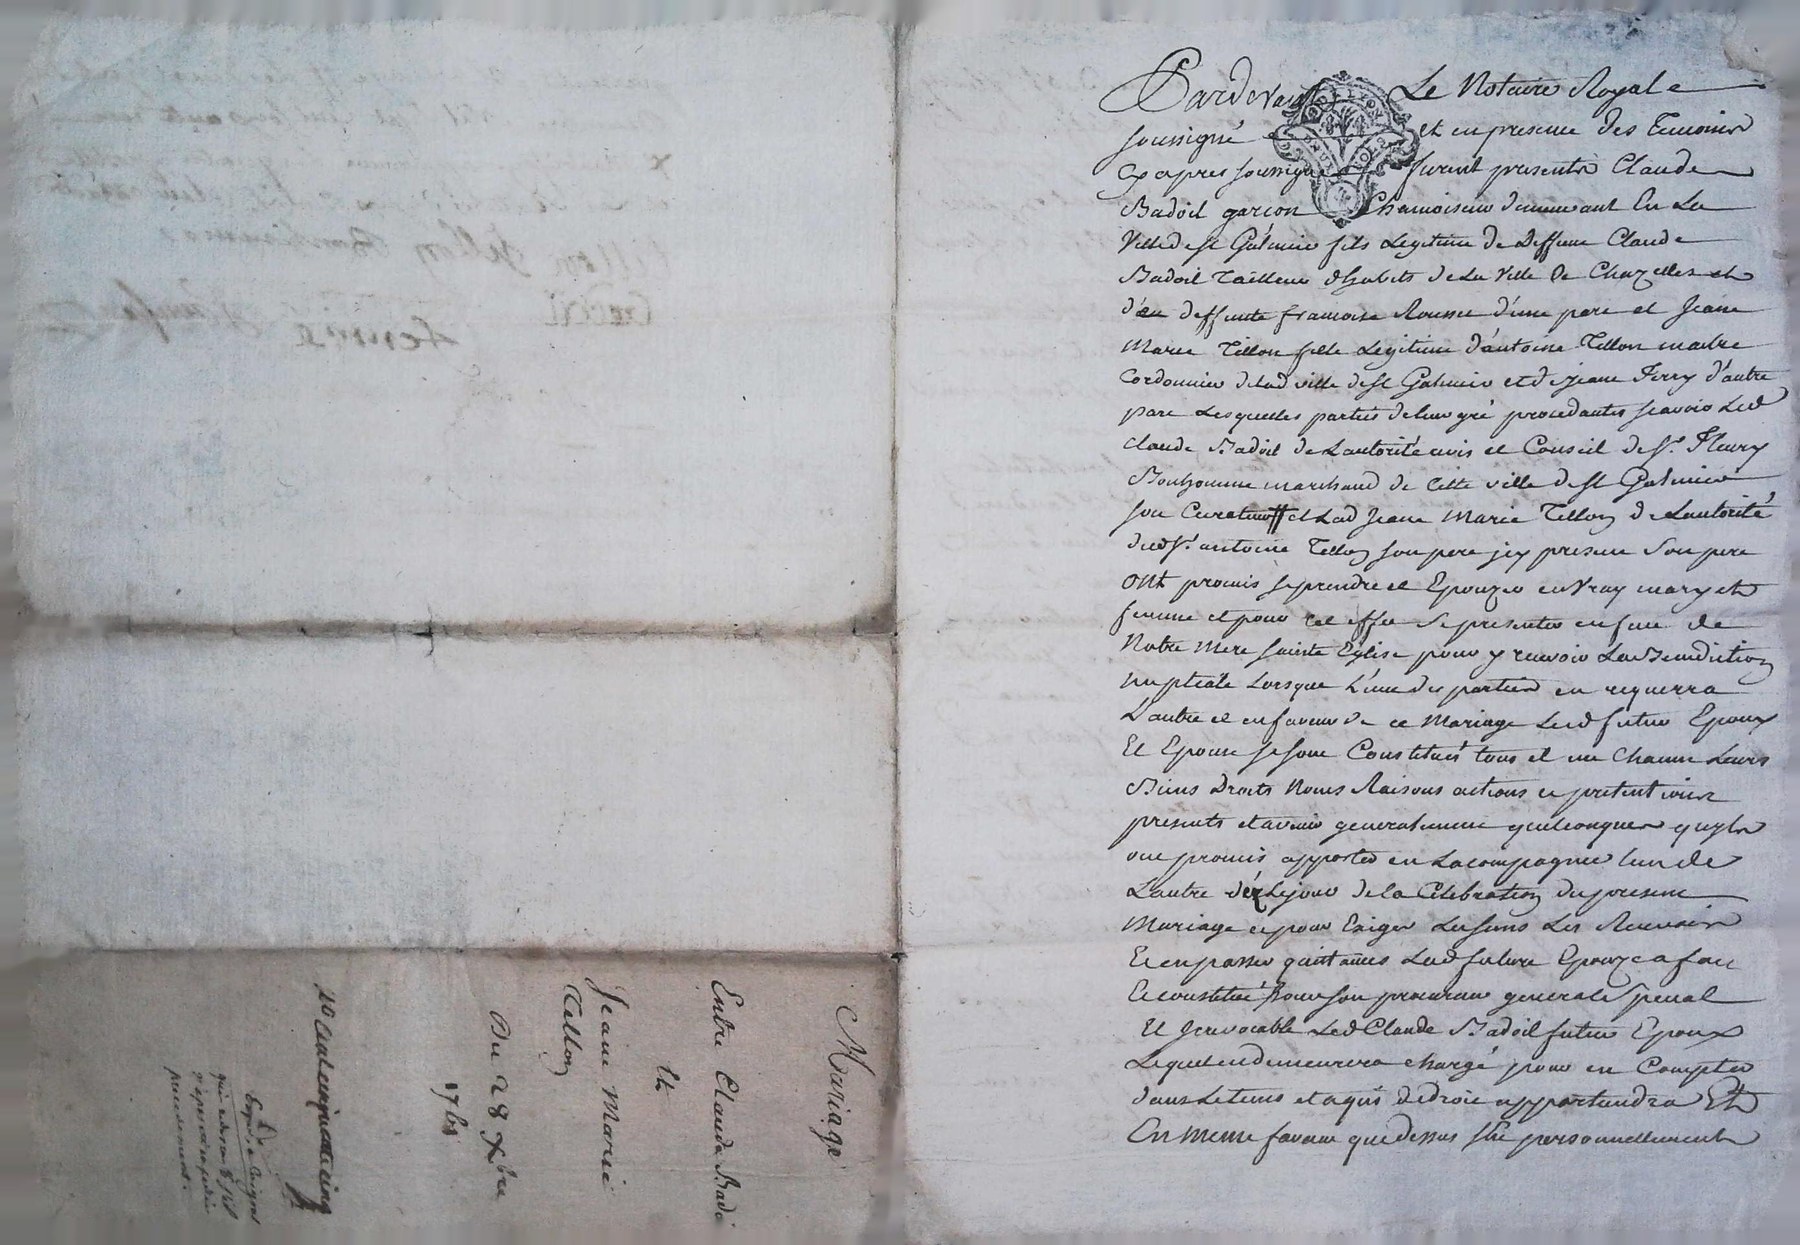 Pardevant Le Notaire Royale
soussigné et en presence des Temoins
cy apres soussignés furent presents Claude
Badoil garcon Chamoiseur demeurant En La
Ville de st Galmier fils Legitime de deffunt Claude
Badoil Tailleur d'habits de La Ville De Chazelles et
deffunte francoise Rousse d'une part et Jeane
Marie Tellon fille Legitime d'antoine Tellon maitre
Cordonnier de lad ville de st Galmier et de jeane Ferry d'autre
part Lesquelles parties de leur gré procedantes scavoir Led
Claude Badoil de L'autorité avis et Conseil de Sr. Fleury
Bonhomme marchand de Cette ville de st Galmier
son Curateur et Lad Jeane Marie Tellon de L'autorité
dud Sr. antoine Tellon son pere jcy present son pere
ont promis se prendre et Epouzer en Vray mary et
femme et pour cet effet Se presenter en face de
Notre Mere Sainte Eglise pour y recevoir La Benediction
nuptiale Lorsque L'une des parties en requerra
L'autre et en faveur de ce Mariage Led futur Epoux
Et Epouse se sont Constitués tous et un Chacun Leurs
Biens Droits Noms Raisons actions et pretentions
presents et avenir generalement quelconques quyls
ont promis apporter en La compagnie l'un de
L'autre déz Le jour de la Celebration du present
Mariage et pour Exiger Les siens Les Recevoir
Et en passer quittances Lad future Epouze a fait
Et constitué pour son procureur generale Special
Et Jrrevocable Led Claude Badoil futur Epoux
Lequel en demeurera chargé pour en Compter
dans Le tems et a qui de droit appartiendra Et
En meme faveur que dessus s'est personnellement
GEN DE LYON
DEUX SOLS
Mariage
Entre Claude Bado
Et
Jeane Marie
Tellon
Du 28 Xbre
1761
precedement.